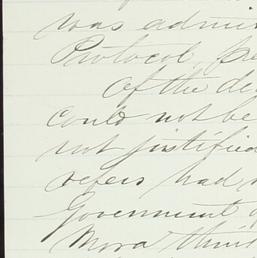 was admi
Protocol, pre
Of the de
could not be
not justified
refers had
Government
Mora thin